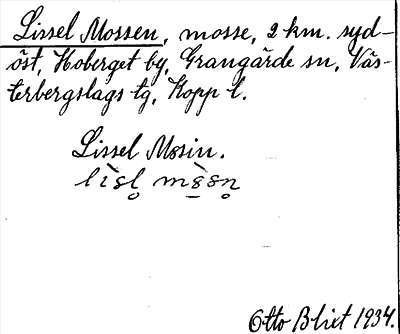 Lissel Mossen, mosse, 2 km. syd-
öst, Hoberget by, Grangärde sn, Väs-
terbergslags tg, Kopp l.
Lissel Mosin.
Otto Blixt 1934.